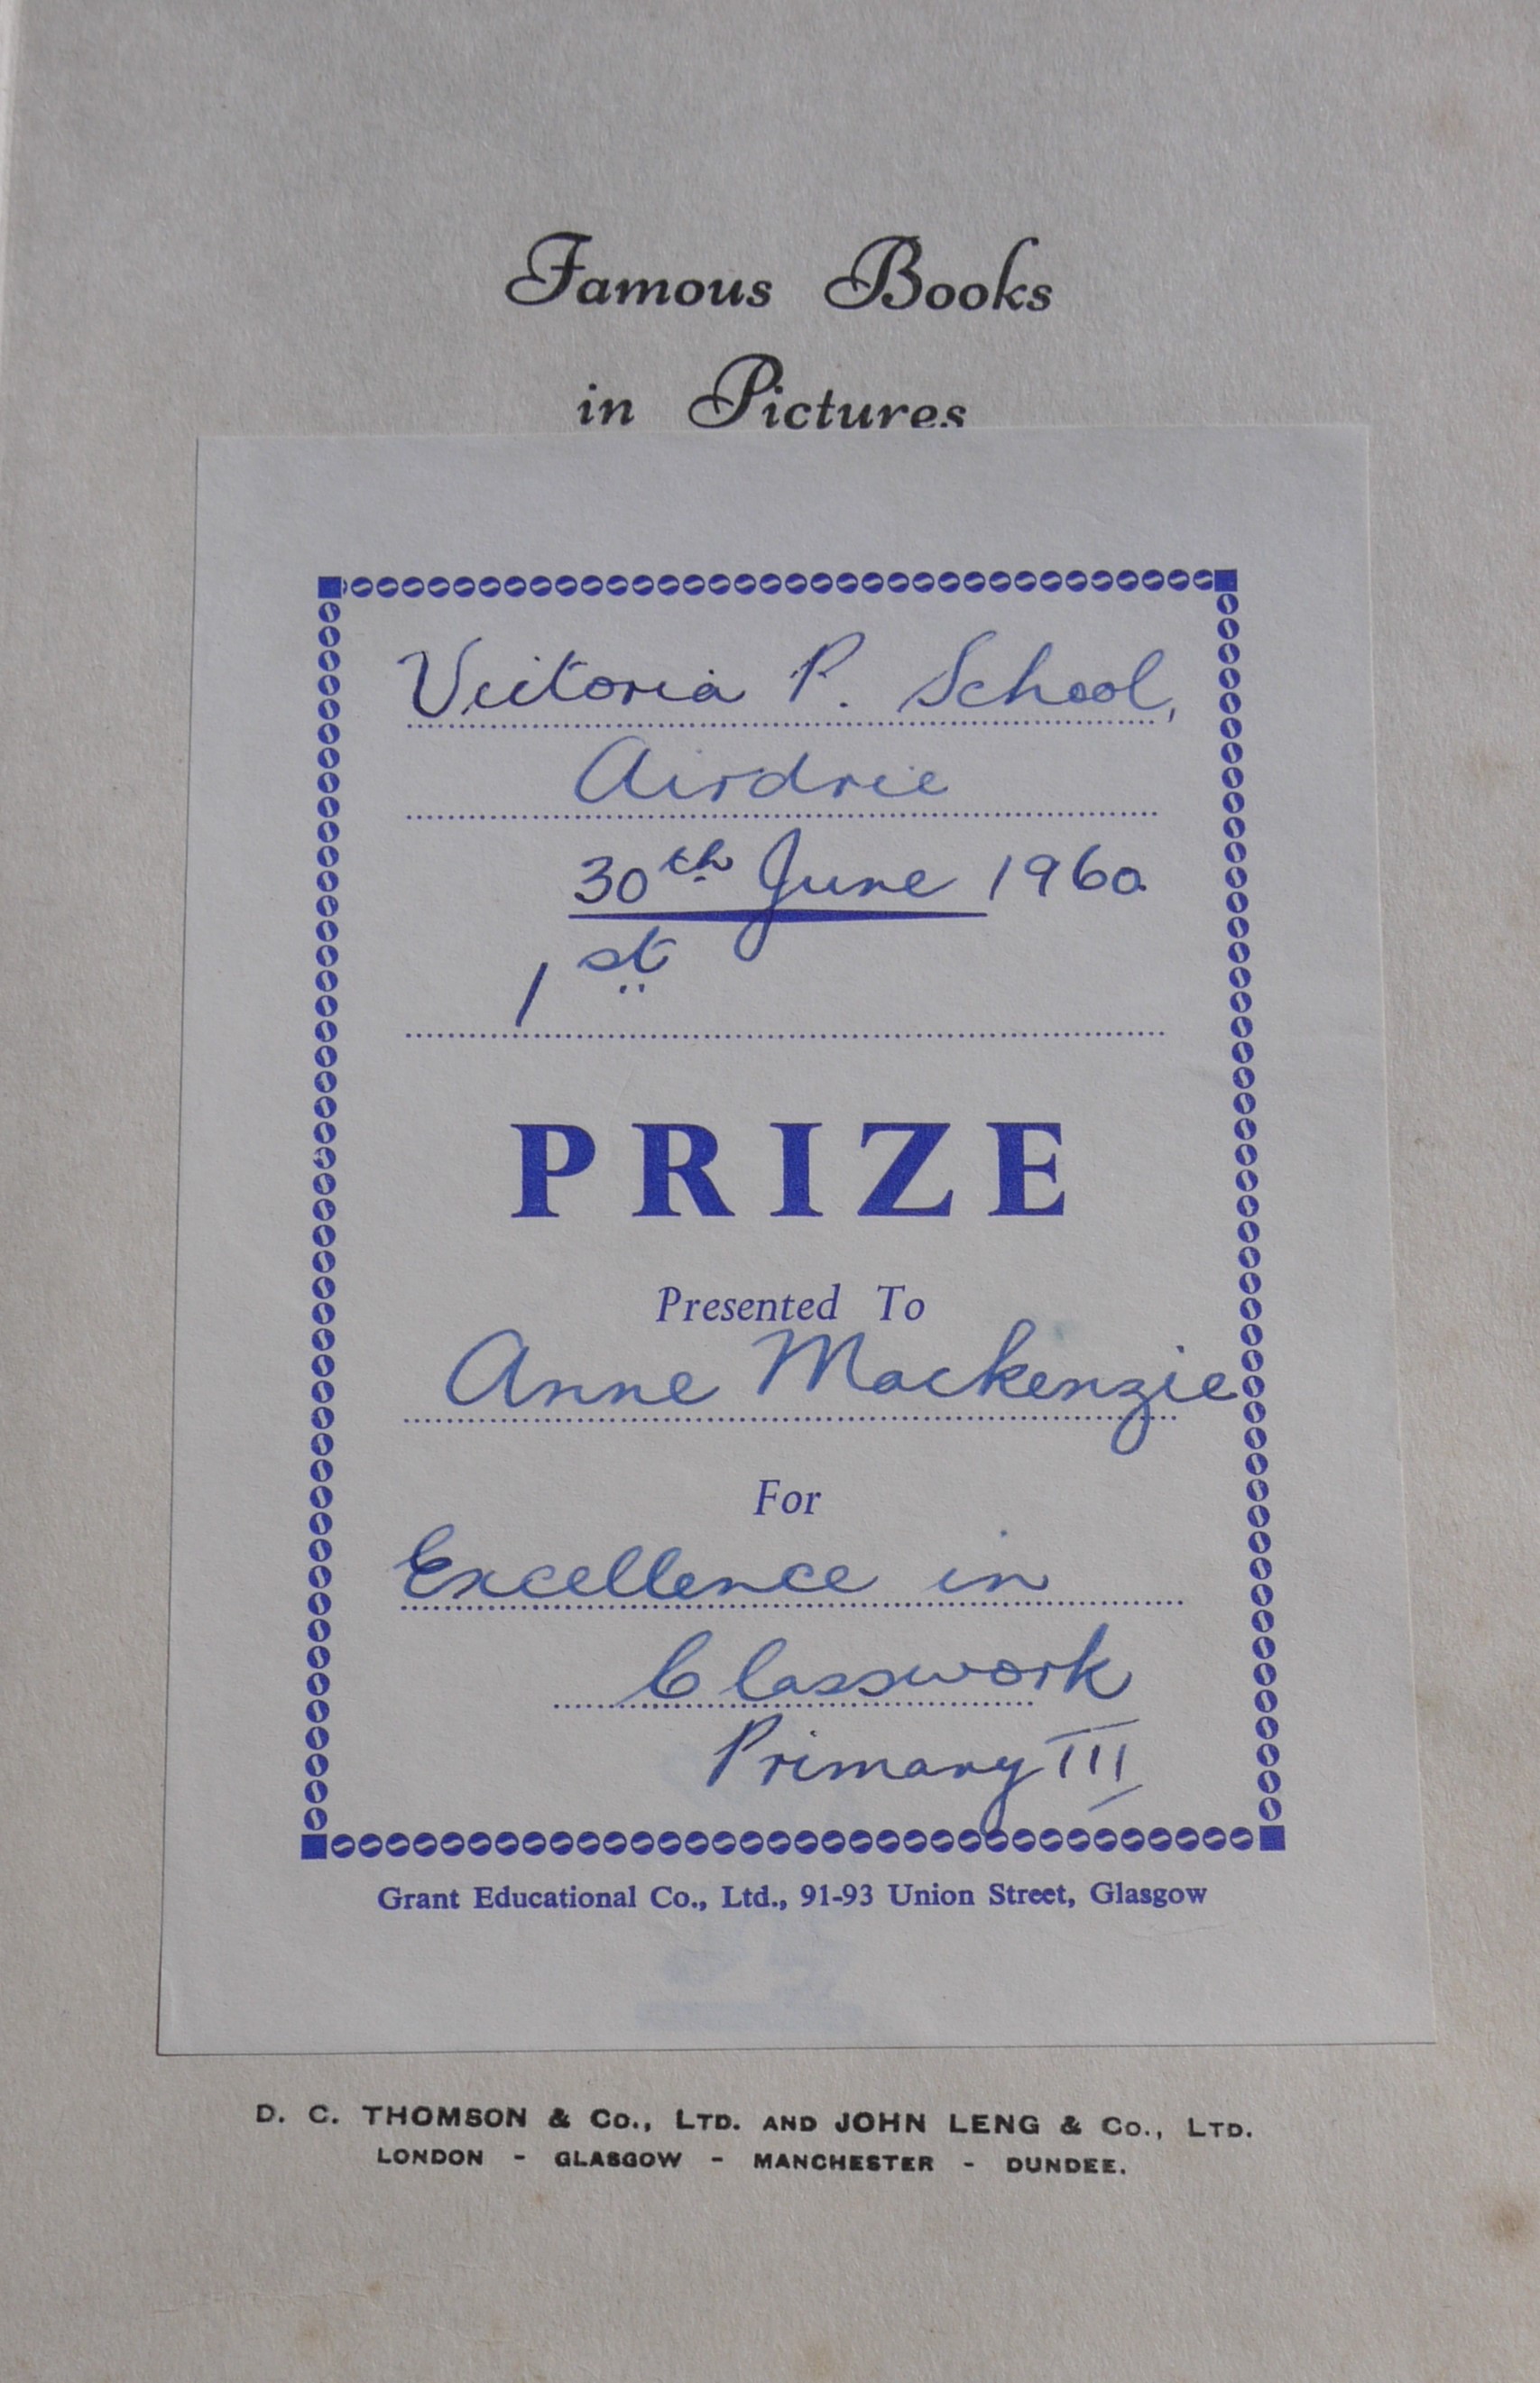 Famous Books
in Pictures
Victoria P. School,
Airdrie
30th June 1960
1st
PRIZE
Presented To
Anne Mackenzie
For
Excellence in
Classwork
Primary III
Grant Educational Co., Ltd., 91-93 Union Street, Glasgow
D. C. THOMSON & Co., LTD. AND JOHN LENG & Co., LTD.
LONDON - GLASGOW - MANCHESTER - DUNDEE.